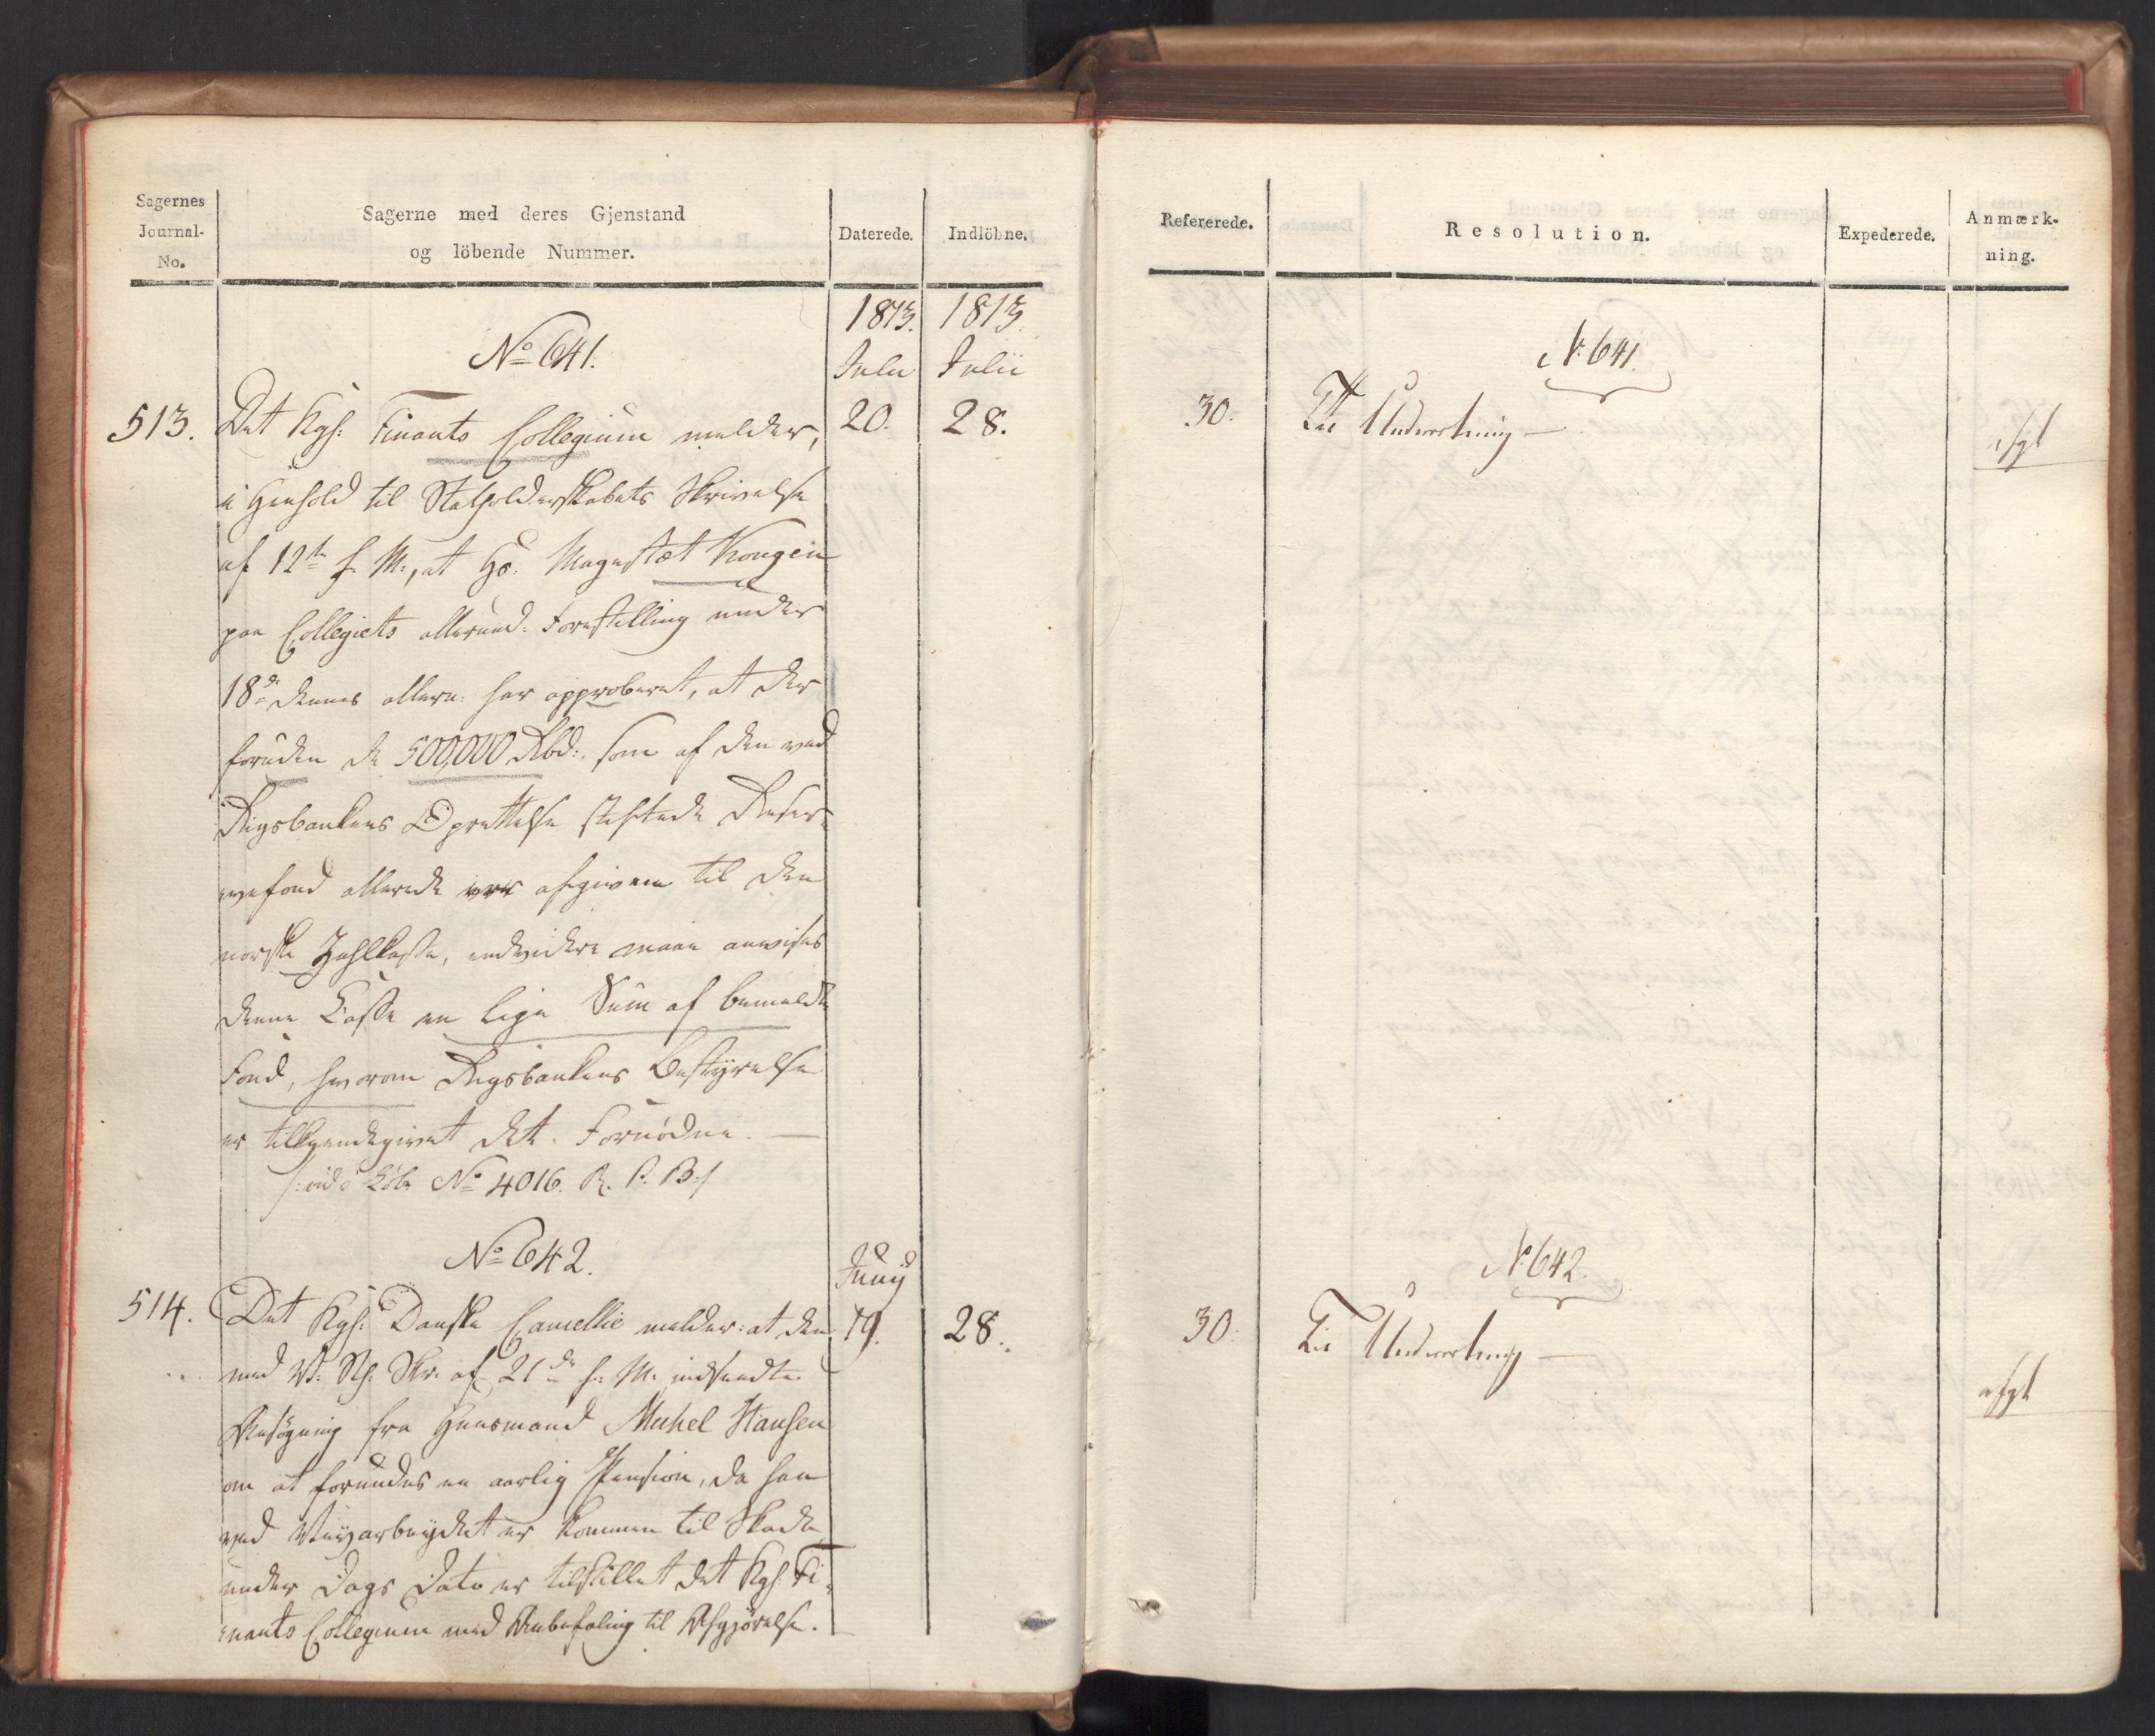 Sagernes
Journal-
No.
Sagerne med deres Gjenstand
og löbende Nummer.
Daterede.
Indlöbne.
1813. 1813
Julii Julii
No 641.
513. Det Kgl: Finants Collegium melder, 20. 28.
i Henhold til Statholderskabets Skrivelse
af 12te f. M:, at Hs. Magestæt Kongen
paa Collegiets allerund: Forestilling under
18de dennes allern: har approberet, at der
foruden de 500,000 Rbd:, som af den ved
Rigsbankens Oprettelse stiftede Reser-
vefond allerede afgiven til den
norske Zahlkasse, endvidere maae anvises
denne Casse en lige Sum af bemeldte
Fond, hvorom Rigsbankens Bestyrelse
er tilkjendegivet det Fornödne. —
No 4016. R. P. B:/
No 642.
Junij
514. Det Kgl: Danske Cancellie melder: at den 19. 28.
med V: Sth: Skr: af 21de f. M. indsendte
Ansögning fra Huusmand Mickel Hansen
om at forundes en aarlig Pension, da han
ved Veiyarbeydet er kommen til Skade,
under Dags Dato er tilstillet det Kgl: Fi-
nants Collegium med Anbefaling til Afgjörelse.
Refererede.
Resolution.
Expederede.
Anmærk-
ning.
N. 641.
30. Til Underretning —
afgt
N. 642.
30. Til Underretning —
afgt